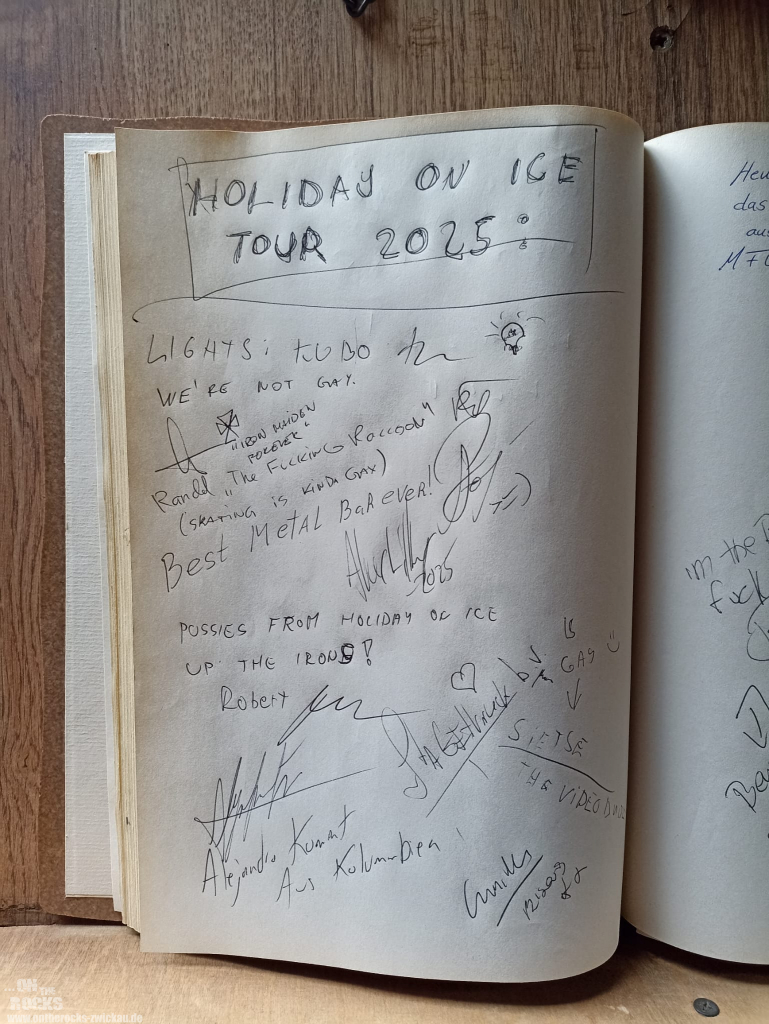 HOLIDAY ON ICE
TOUR 2025:
LIGHTS: KUBO
WE'RE NOT GAY.
"IRON MAIDEN
FOREVER"
Randd "The Fucking Raccoon"
(SKATING IS KINDA GAY)
Best Metal Bar ever!
2025
PUSSIES FROM HOLIDAY ON ICE
UP THE IRONS!
Robert
IS
GAY
SIETSE
THE VIDEO
Alejandro Kommt
Aus Kolumbien!
Heu
das
aus
im the
fuck
...ON THE
ROCKS
www.ontherocks-zwickau.de